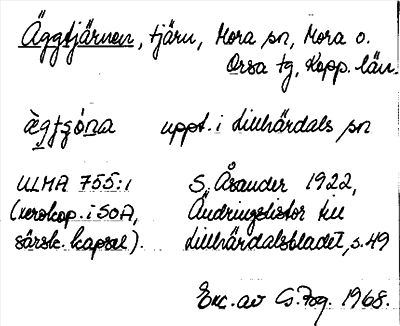 Äggtjärnen, tjärn, Mora sn, Mora o.
Orsa tg, Kopp. län.
ägtjó̱na uppt. i Lillhärdals sn
ULMA 755:1 S. Åsander 1922,
(xerokop. i SOA, Ändringslistor till
särsk. kapsel). Lillhärdalsbladet, s. 49
Exc. av G. Fog. 1968.